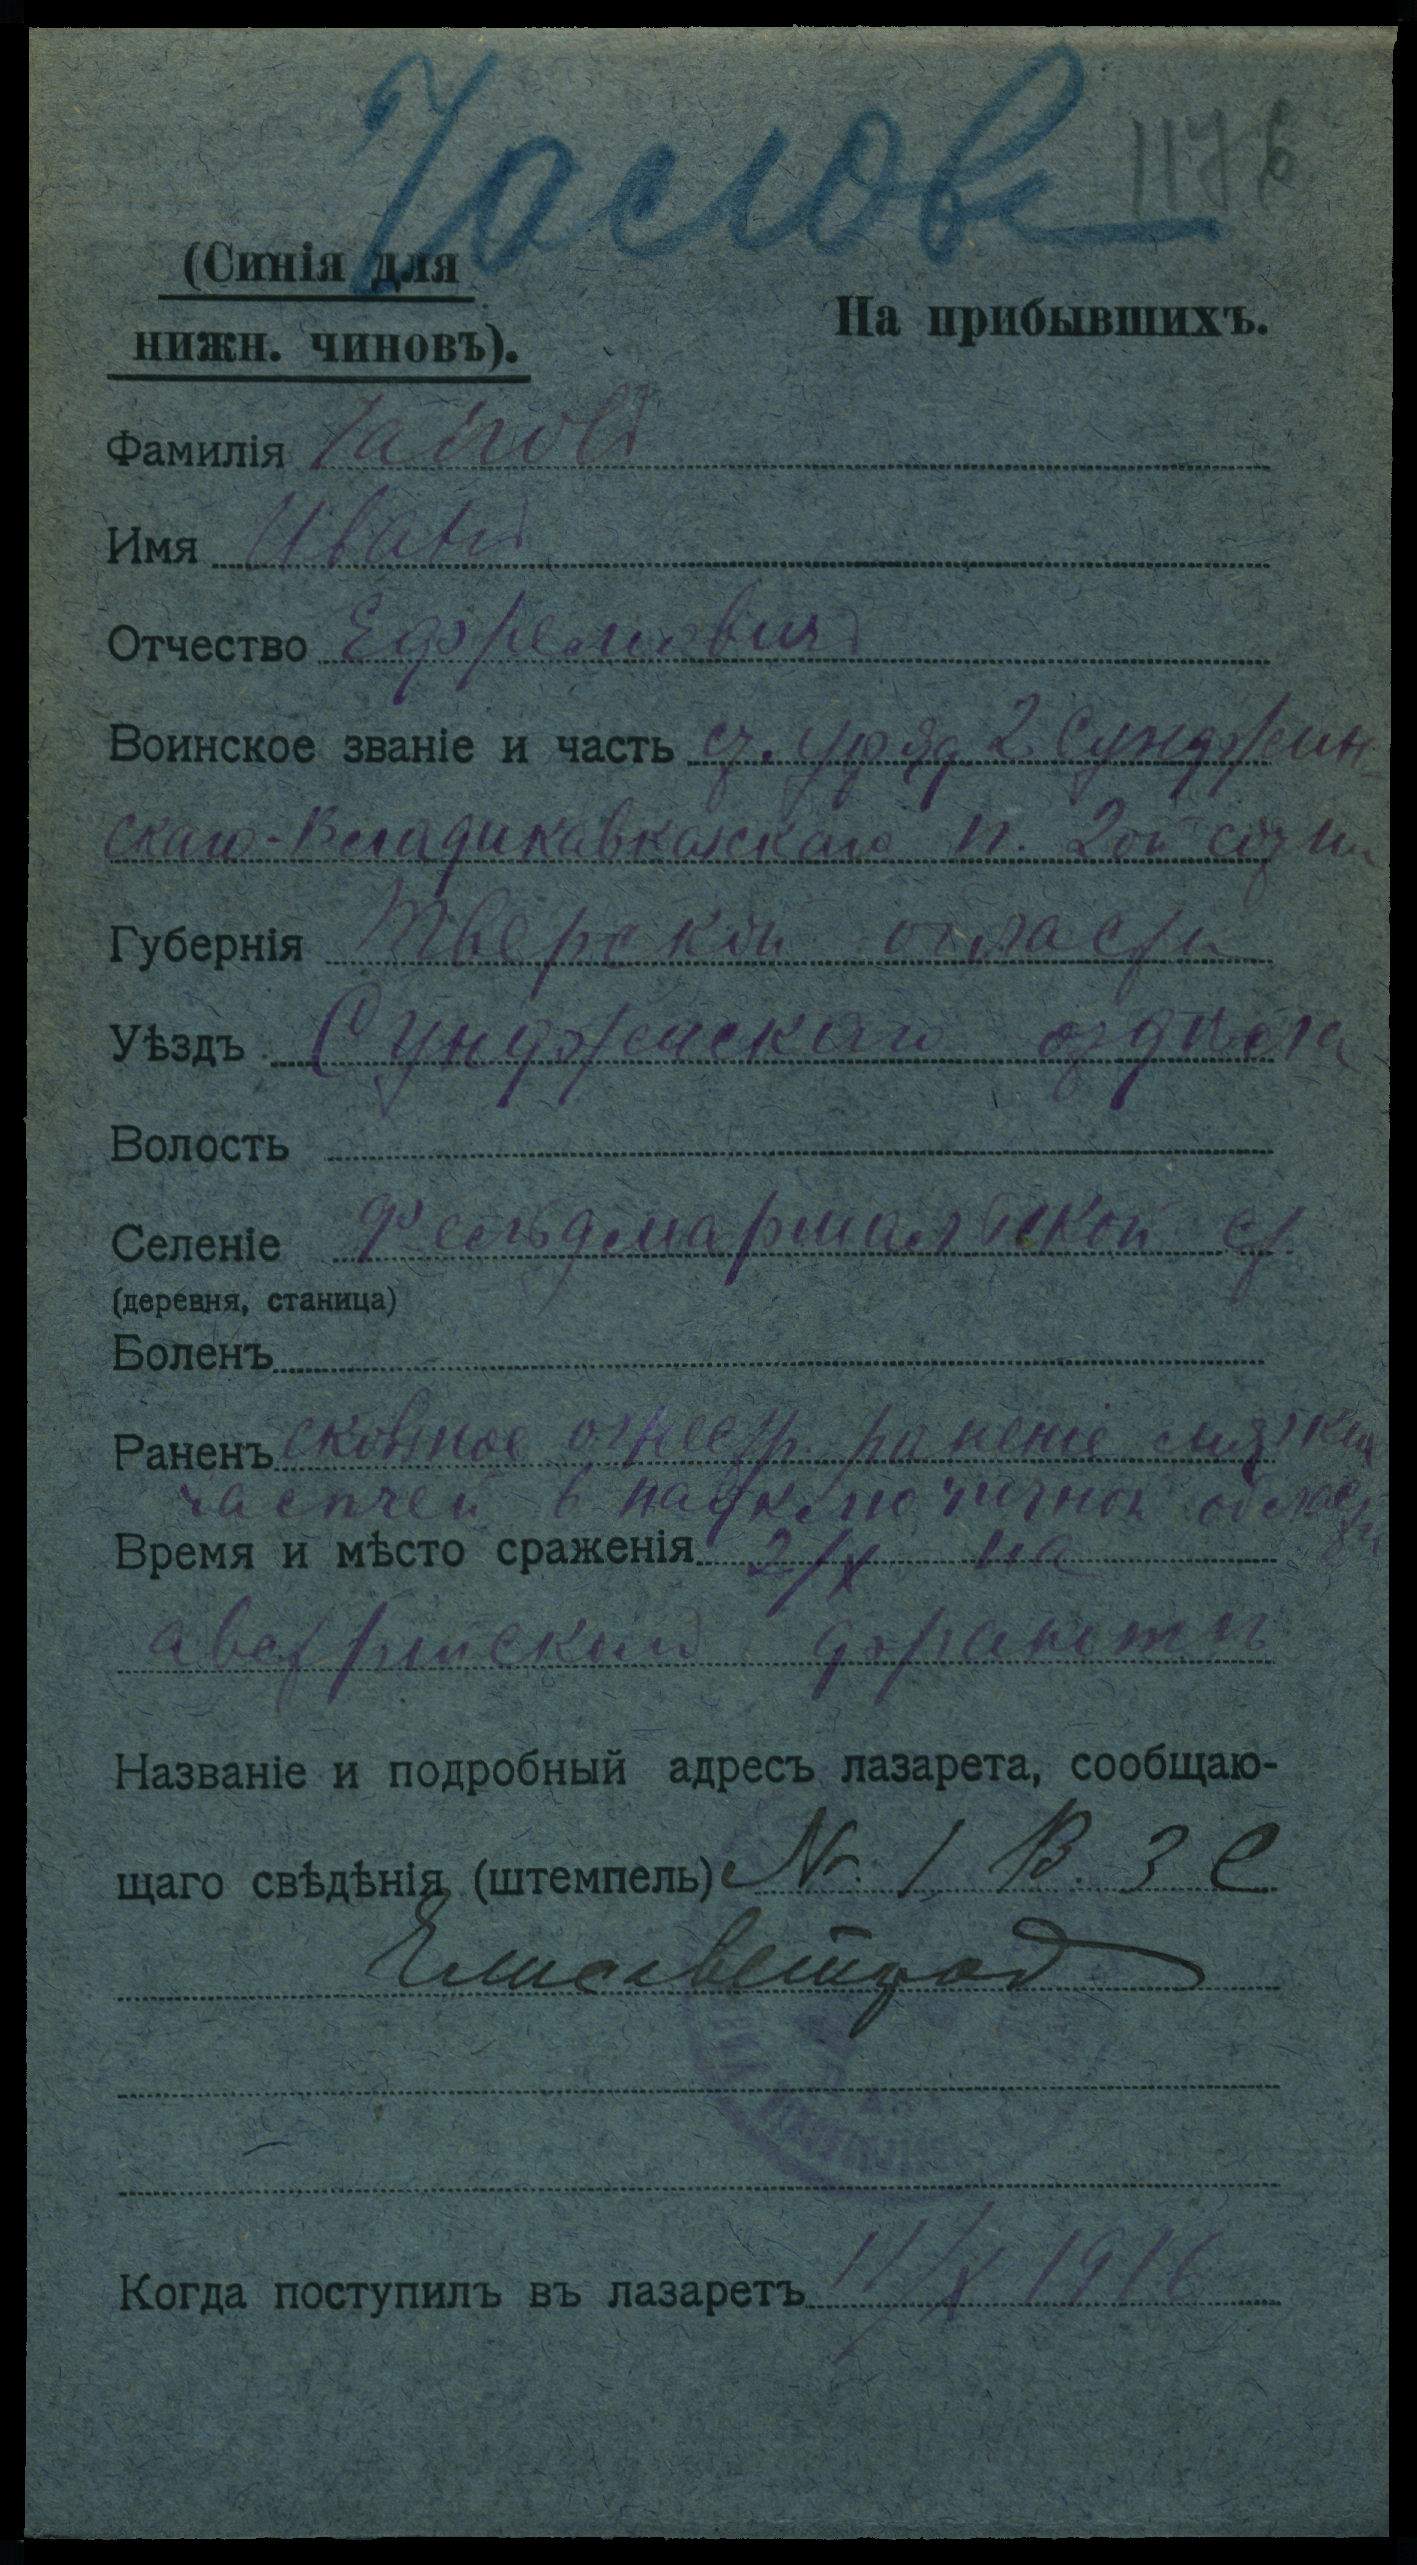 Часов
1176
(Синія для
нижн. чиновъ).
На прибывшихъ.
Фамилія
Имя Иванъ
Отчество Ефремовичъ
Воинское званіе и часть ст. уряд 2 Сунджин-
скаго-Владикавказскаго п. 2ой сотни
Губернія Тверской области
Уѣздъ Сунджинскаго отдѣла
Волость
Селеніе Фельдмаршальской ст.
(деревня, станица)
Боленъ
Раненъ сквозное огнестр. раненіе мягких
частей в надключичной области
Время и мѣсто сраженія 2/X на
австрійскомъ фронтѣ
Названіе и подробный адресъ лазарета, сообщаю-
щаго свѣдѣнія (штемпель) № 1 В. З С
Елисаветград
Когда поступилъ въ лазаретъ 11/X 1916